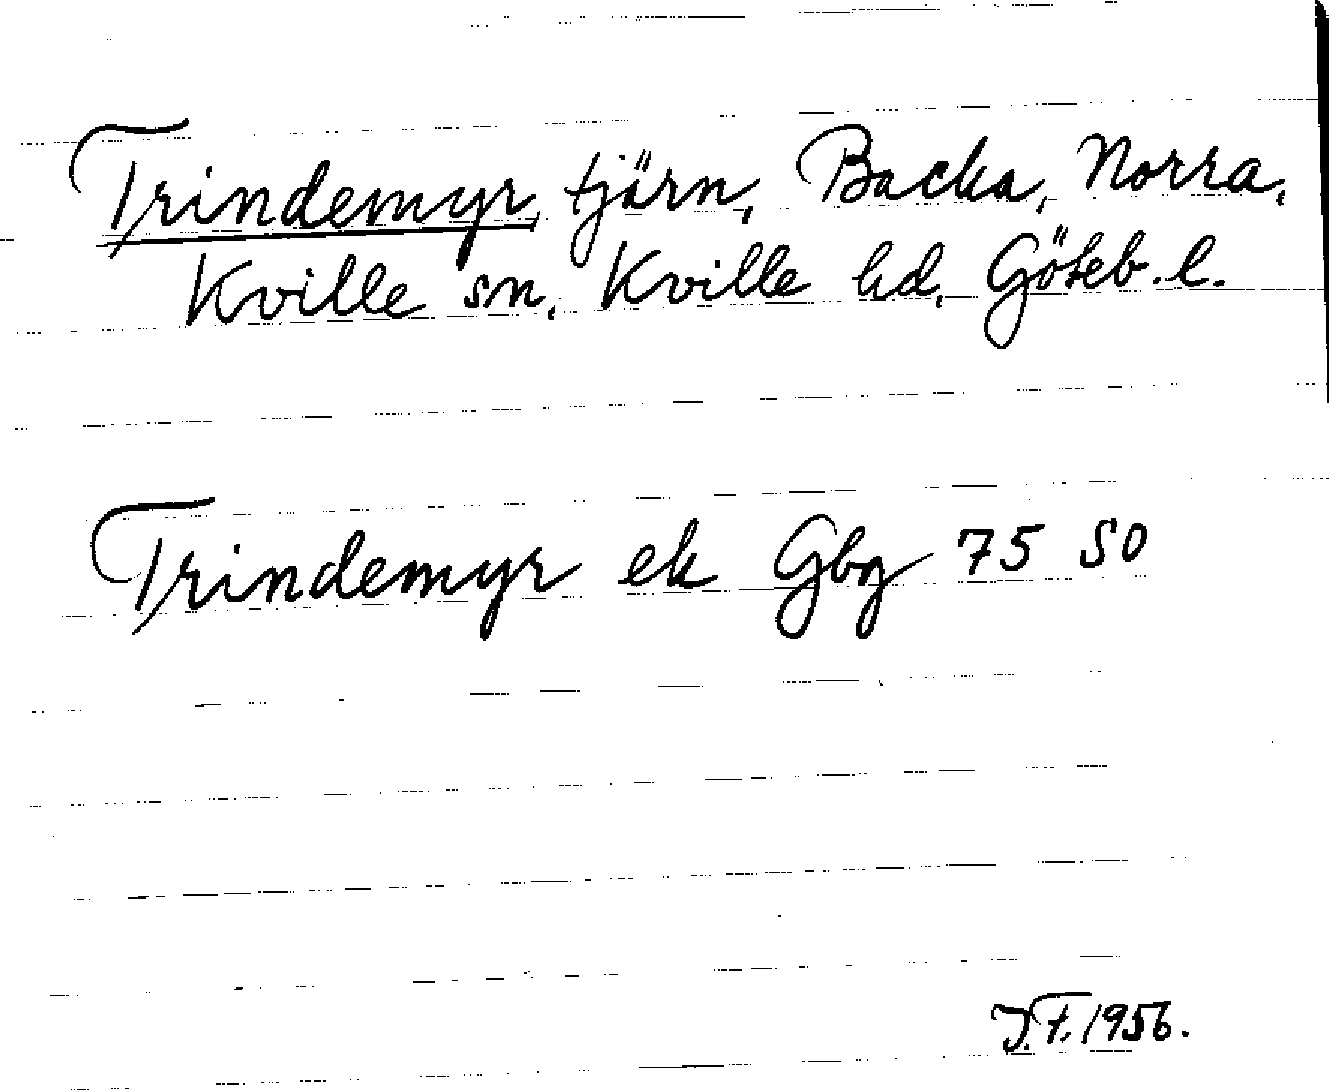 Trindemyr, tjärn, Backa, Norra,
Kville sn, Kville hd, Göteb. l.
Trindemyr ek Gbg 75 SO
J.F. 1956.